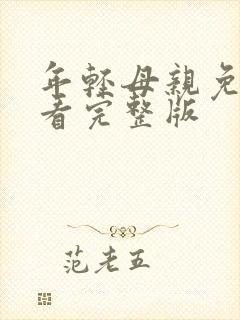 年轻母親免
看完整版
范老五